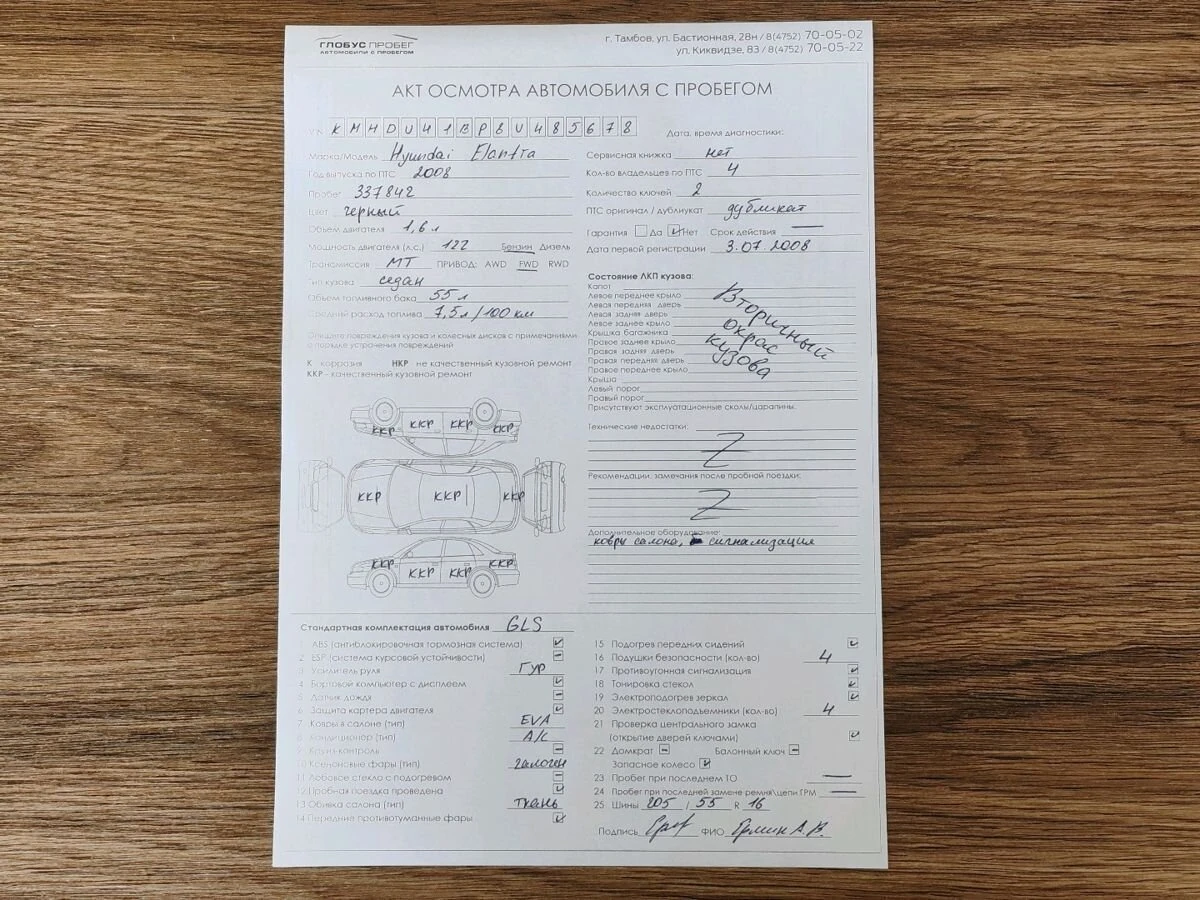 ГЛОБУС ПРОБЕГ
АВТОМОБИЛИ С ПРОБЕГОМ
г. Тамбов, ул. Бастионная, 28н / 8(4752) 70-05-02
ул. Киквидзе, 83 / 8(4752) 70-05-22
АКТ ОСМОТРА АВТОМОБИЛЯ С ПРОБЕГОМ
VIN KMHDU41BP8U485678
Дата, время диагностики:
Марка/Модель Hyundai Elantra
Год выпуска по ПТС 2008
Пробег 337842
Цвет черный
Объем двигателя 1,6л
Мощность двигателя (л.с.) 122 Бензин Дизель
Трансмиссия МТ ПРИВОД: AWD FWD RWD
Тип кузова седан
Объем топливного бака 55л
Средний расход топлива 7,5л/100км
Опишите повреждения кузова и колесных дисков с примечаниями
о порядке устранения повреждений
К коррозия НКР не качественный кузовной ремонт
ККР - качественный кузовной ремонт
ККР ККР ККР ККР
ККР ККР ККР
ККР ККР ККР ККР
Сервисная книжка нет
Кол-во владельцев по ПТС 4
Количество ключей 2
ПТС оригинал / дубликат дубликат
Гарантия Да Нет Срок действия —
Дата первой регистрации 3.07.2008
Состояние ЛКП кузова:
Капот
Левое переднее крыло
Левая передняя дверь
Левая задняя дверь
Левое заднее крыло
Крышка багажника
Правое заднее крыло
Правая задняя дверь
Правая передняя дверь
Правое переднее крыло
Крыша
Левый порог
Правый порог
Вторичный
окрас
кузова
Присутствуют эксплуатационные сколы/царапины.
Технические недостатки:
Z
Рекомендации: замечания после пробной поездки:
Z
Дополнительное оборудование:
ковры салона, сигнализация
Стандартная комплектация автомобиля GLS
1 ABS (антиблокировочная тормозная система)
2 ESP (система курсовой устойчивости)
3 Усилитель руля ГУР
4 Бортовой компьютер с дисплеем
5 Датчик дождя
6 Защита картера двигателя
7 Ковры в салоне (тип) EVA
8 Кондиционер (тип) A/C
9 Круиз-контроль
10 Ксеноновые фары (тип) галоген
11 Лобовое стекло с подогревом
12 Пробная поездка проведена
13 Обивка салона (тип) ткань
14 Передние противотуманные фары
15 Подогрев передних сидений
16 Подушки безопасности (кол-во) 4
17 Противоугонная сигнализация
18 Тонировка стекол
19 Электроподогрев зеркал
20 Электростеклоподъемники (кол-во) 4
21 Проверка центрального замка
(открытие дверей ключами)
22 Домкрат Балонный ключ
Запасное колесо
23 Пробег при последнем ТО —
24 Пробег при последней замене ремня\цепи ГРМ —
25 Шины 205 / 55 R 16
Подпись ФИО Ермин А.В.